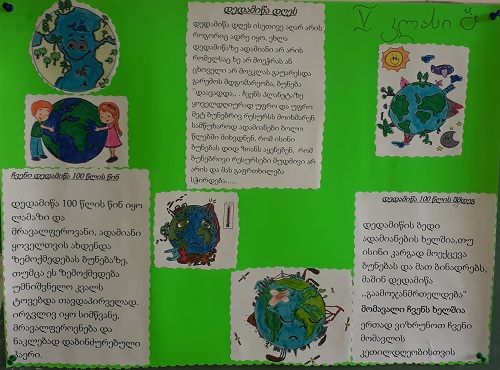 დედამიწა დღეს
დედამიწა დღეს ისეთივე აღარ არის
როგორიც ადრე იყო. ეხლა
დედამიწაზე ადამიანი არ არის
რომელსაც ხე არ მოეჭრას ან
ცხოველი არ მოეკლას გაუარესდა
გარემოს მდგომარეობა, ბუნება
"დაავადდა,, . ჩვენს პლანეტაზე
ყოველდღიურად უფრო და უფრო
მეტ ბუნებრივ რესურსს მოიხმარენ.
სამწუხაროდ ადამიანები ბოლო
წლებში მიხვდნენ, რომ ისინი
ბუნებას დიდ ზიანს აყენებენ, რომ
ბუნებრივი რესურსები მუდმივი არ
არის და მას გაფრთხილება
სჭირდება......
V კლასი
ჩვენი დედამიწა 100 წლის წინ
დედამიწა 100 წლის წინ იყო
ლამაზი და
მრავალფეროვანი, ადამიანი
ყოველთვის ახდენდა
ზემოქმედებას ბუნებაზე,
თუმცა ეს ზემოქმედება
უმნიშვნელო კვალს
ტოვებდა თავდაპირველად.
ირგვლივ იყო სიმწვანე,
მრავალფეროვნება და
ნაკლებად დაბინძურებული
ჰაერი.
დედამიწა 100 წლის შემდეგ
დედამიწის ბედი
ადამიანების ხელშია,თუ
ისინი კარგად მოექცევა
ბუნებას და მათ ბინადრებს,
მაშინ დედამიწა
,,გაამოჯანმრთელდება"
მომავალი ჩვენს ხელშია
ერთად ვიზრუნოთ ჩვენი
მომავლის
კეთილდღეობისთვის